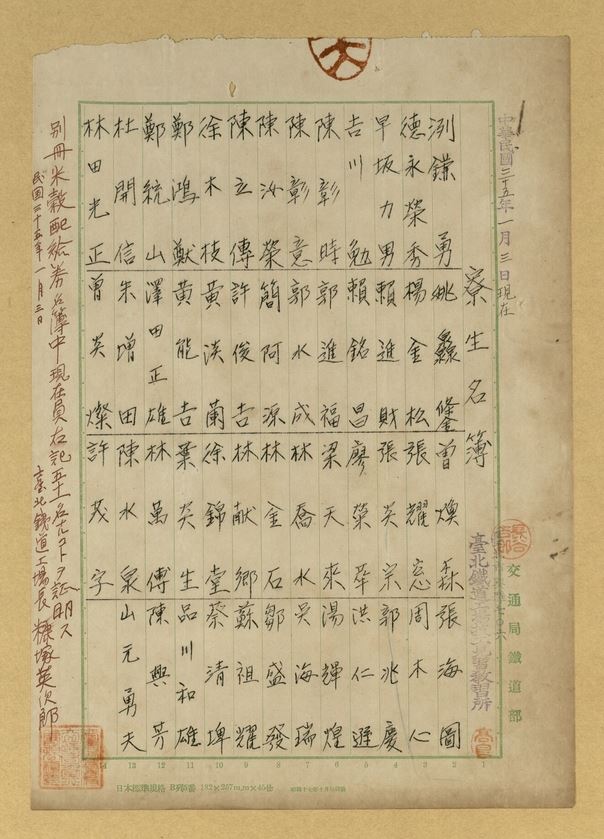 中華民國三十五年一月三日現在
寮生名簿
交通局鐵道部
臺北鐵道
教習所
鎌勇 姚 曾煥森 張海圖
德永榮秀 楊金松 張耀窓 周木心
早坂力男 賴進財 張英宗 郭兆慶
吉川勉 賴銘昌 廖榮華 洪仁遜
陳彰時 郭進福 梁天來 湯輝煌
陳彰意 郭水成 林喬水 吳海瑞
陳汝榮 簡阿源 林金石 鄒盛發
陳立傳 許俊吉 林献鄉 蘇祖耀
徐木枝 黃淡蘭 徐錦堂 蔡清埤
鄭鴻猷 黃能吉 葉英生 品川和雄
鄭統山 澤田正雄 林萬傅 陳興芳
杜開信 朱增田 陳水泉 山元勇夫
林田光正 曾英燦 許茂字
別冊米穀配給券名簿中現在員右記五十一名ナルコトヲ証明ス
民国三十五年一月三日
臺北鐵道工場長 糠塚英次郎
14 13 12 11 10 9 8 7 6 5 4 3 2 1
日本標準規格 B列5番 182×257m.m×45